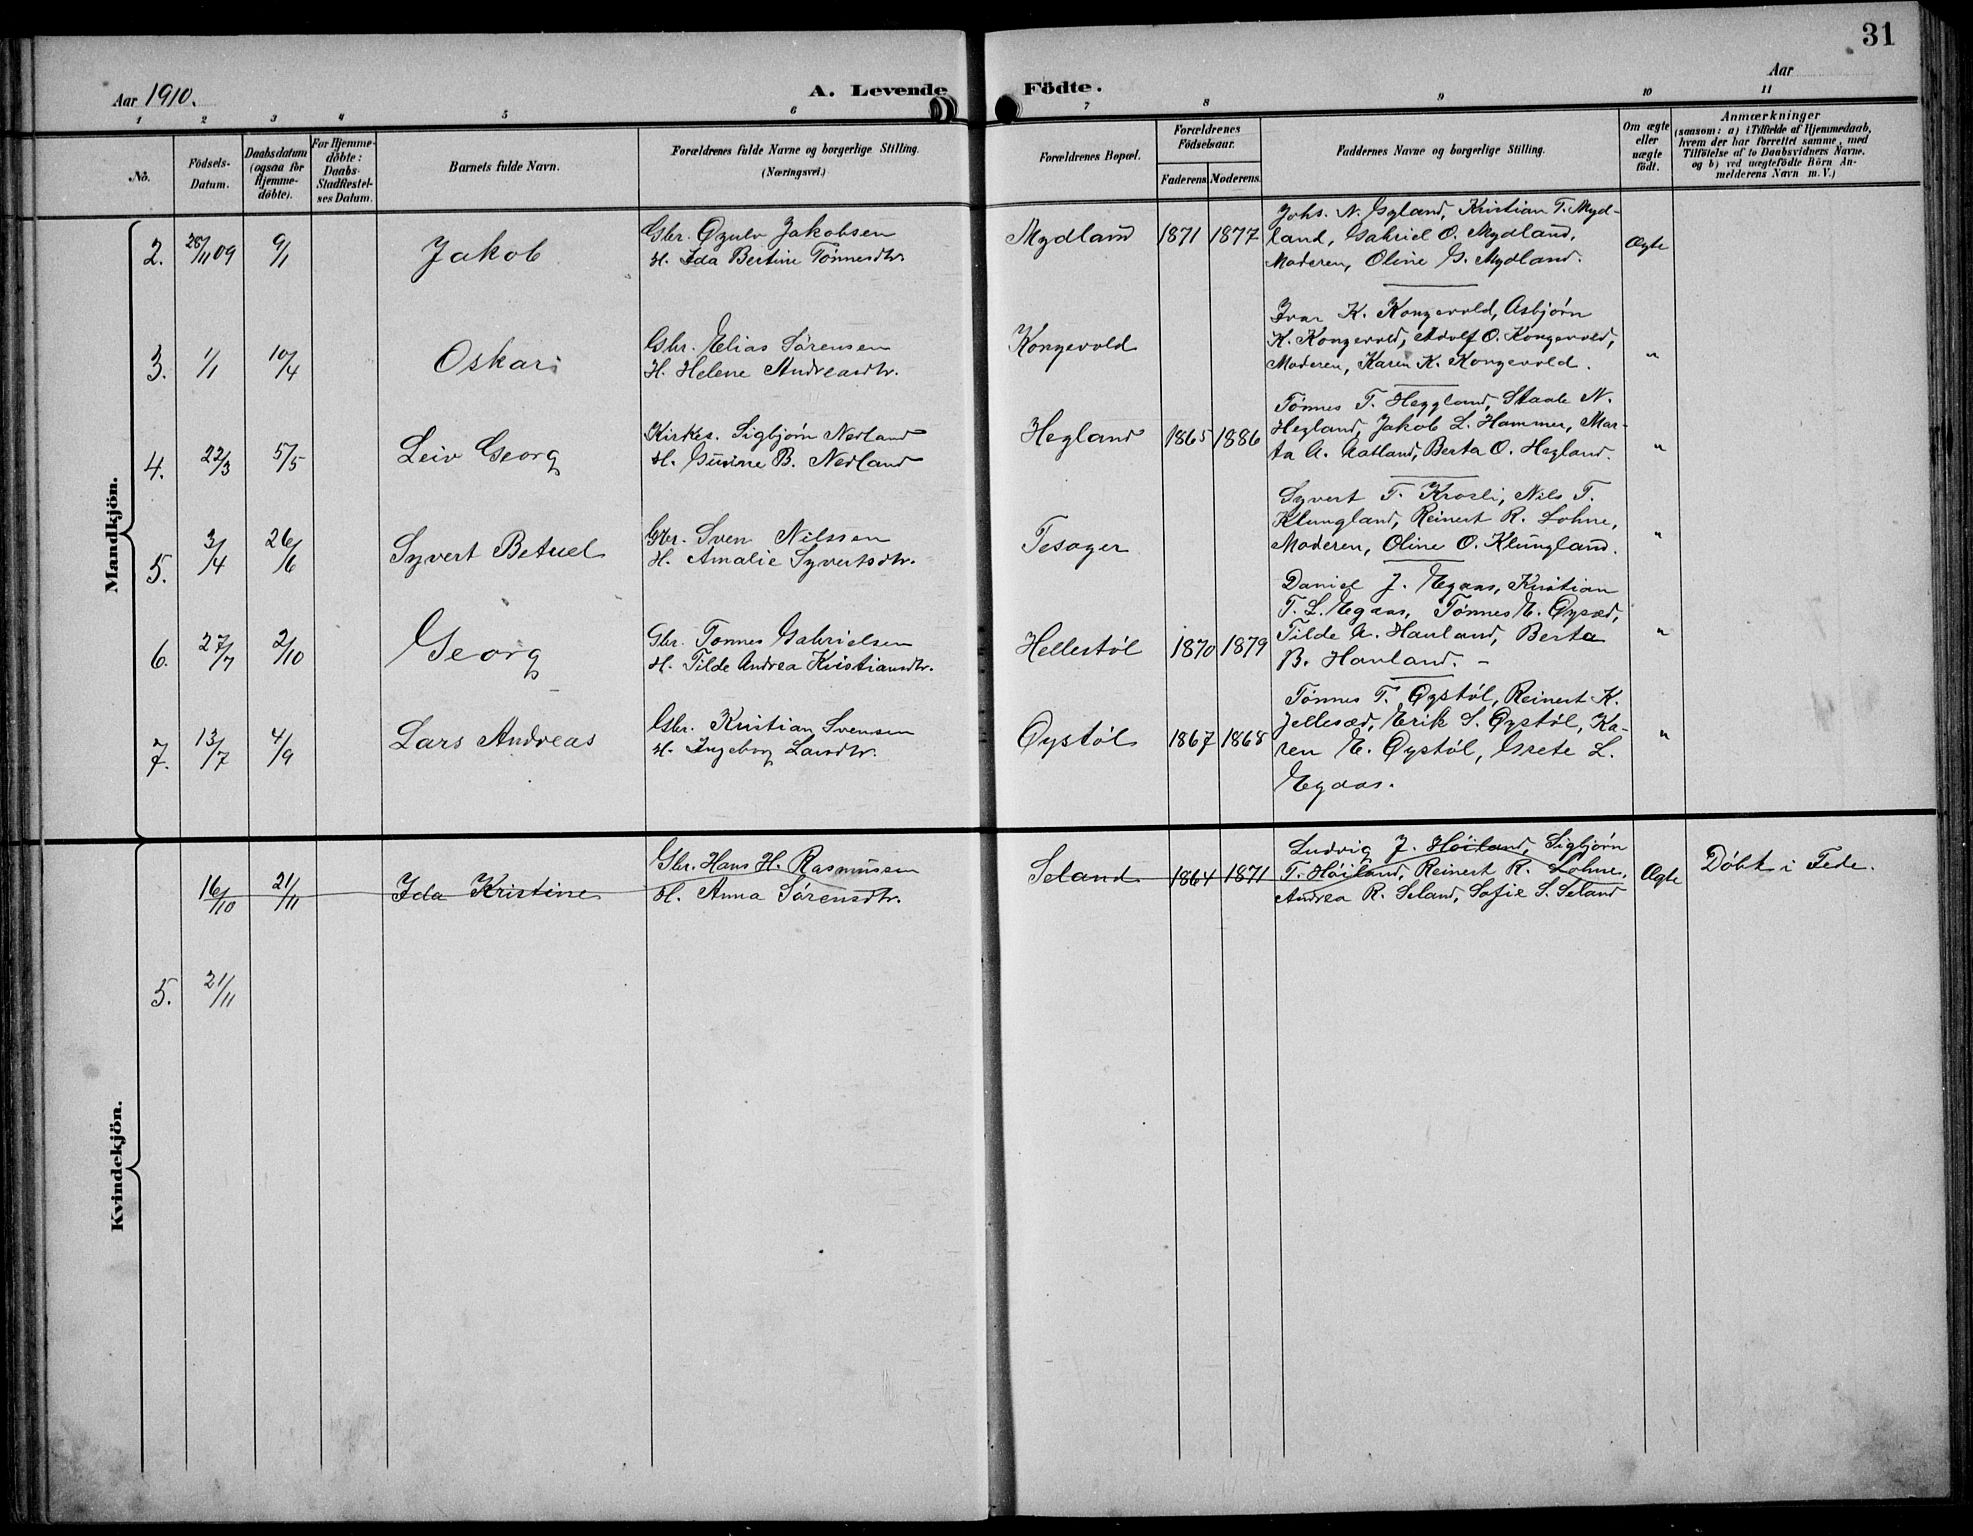 31
Aar 1910.
A. Levende Födte.
Aar
1 2 3 4 5 6 7 8 9 10 11
No.
Födsels-
Datum.
Daabsdatum
(ogsaa for
Hjemme-
döbte).
For Hjemme-
döbte:
Daabs-
Stadfæstel-
ses Datum.
Barnets fulde Navn.
Forældrenes fulde Navne og borgerlige Stilling.
(Næringsvei.)
Forældrenes Bopæl.
Forældrenes
Födselsaar.
Faderens. Moderens.
Faddernes Navne og borgerlige Stilling.
Om ægte
eller
uægte
födt.
Anmærkninger
(saasom: a) i Tilfælde af Hjemmedaab,
hvem der har forrettet samme, med
Tilföielse af to Daabsvidners Navne,
og b) ved uægtefödte Börn An-
melderens Navn m. V.)
Mandkjön.
2. 28/11 09 9/1 Jakob
Gbr. Øyulv Jakobsen
H. Ida Bertine Tönnesdtr.
Mydland 1871 1877
Johs. N. Gyland, Kristian T. Myd-
land, Gabriel O. Mydland,
Moderen, Oline G. Mydland.
Ægte
3. 1/1 10/4 Oskar
Gbr. Elias Sörensen
H. Helene Andreasdtr.
Kongevold
Ivar K. Kongevold, Asbjørn
K. Kongevold, Adolf O. Kongevold,
Moderen, Karen K. Kongevold.
"
4. 22/3 5/5 Leiv Georg
Kirkes. Sigbjørn Nedland
H. Gusine B. Nedland
Hegland 1865 1886
Tönnes T. Heggland, Staale N.
Hegland, Jakob L. Hammer, Mar-
ta A. Aatland, Berta O. Hegland.
"
5. 3/4 26/6 Syvert Betuel
Gbr. Sven Nilssen
H. Amalie Syvertsdtr.
Tesager
Syvert T. Krosli, Nils T.
Klungland, Reinert R. Lohne,
Moderen, Oline O. Klungland.
"
6. 27/7 2/10 Georg
Gbr. Tönnes Gabrielsen
H. Tilde Andrea Kristiansdtr.
Hellestöl 1870 1879
Daniel J. Egaas, Kristian
T. L. Egaas, Tönnes E. Øysæd,
Tilde A. Hauland, Berta
B. Hauland. -
"
7. 13/7 4/9 Lars Andreas
Gbr. Kristian Svensen
H. Ingeborg Larsdtr.
Øystöl 1867 1868
Tönnes T. Øystöl, Reinert K.
Jellesæd, Erik S. Øystöl, Ka-
ren E. Øystöl, Grete L.
Egaas.
"
Kvindekjön.
16/10 21/11 Ida Kristine
Gbr. Hans H. Rasmussen
H. Anna Sörensdtr.
Seland 1864 1871
Ludvig J. Höiland, Sigbjørn
T. Höiland, Reinert R. Lohne,
Andrea R. Seland, Sofie S. Seland
Ægte
Döbt i Fede.
5. 21/11